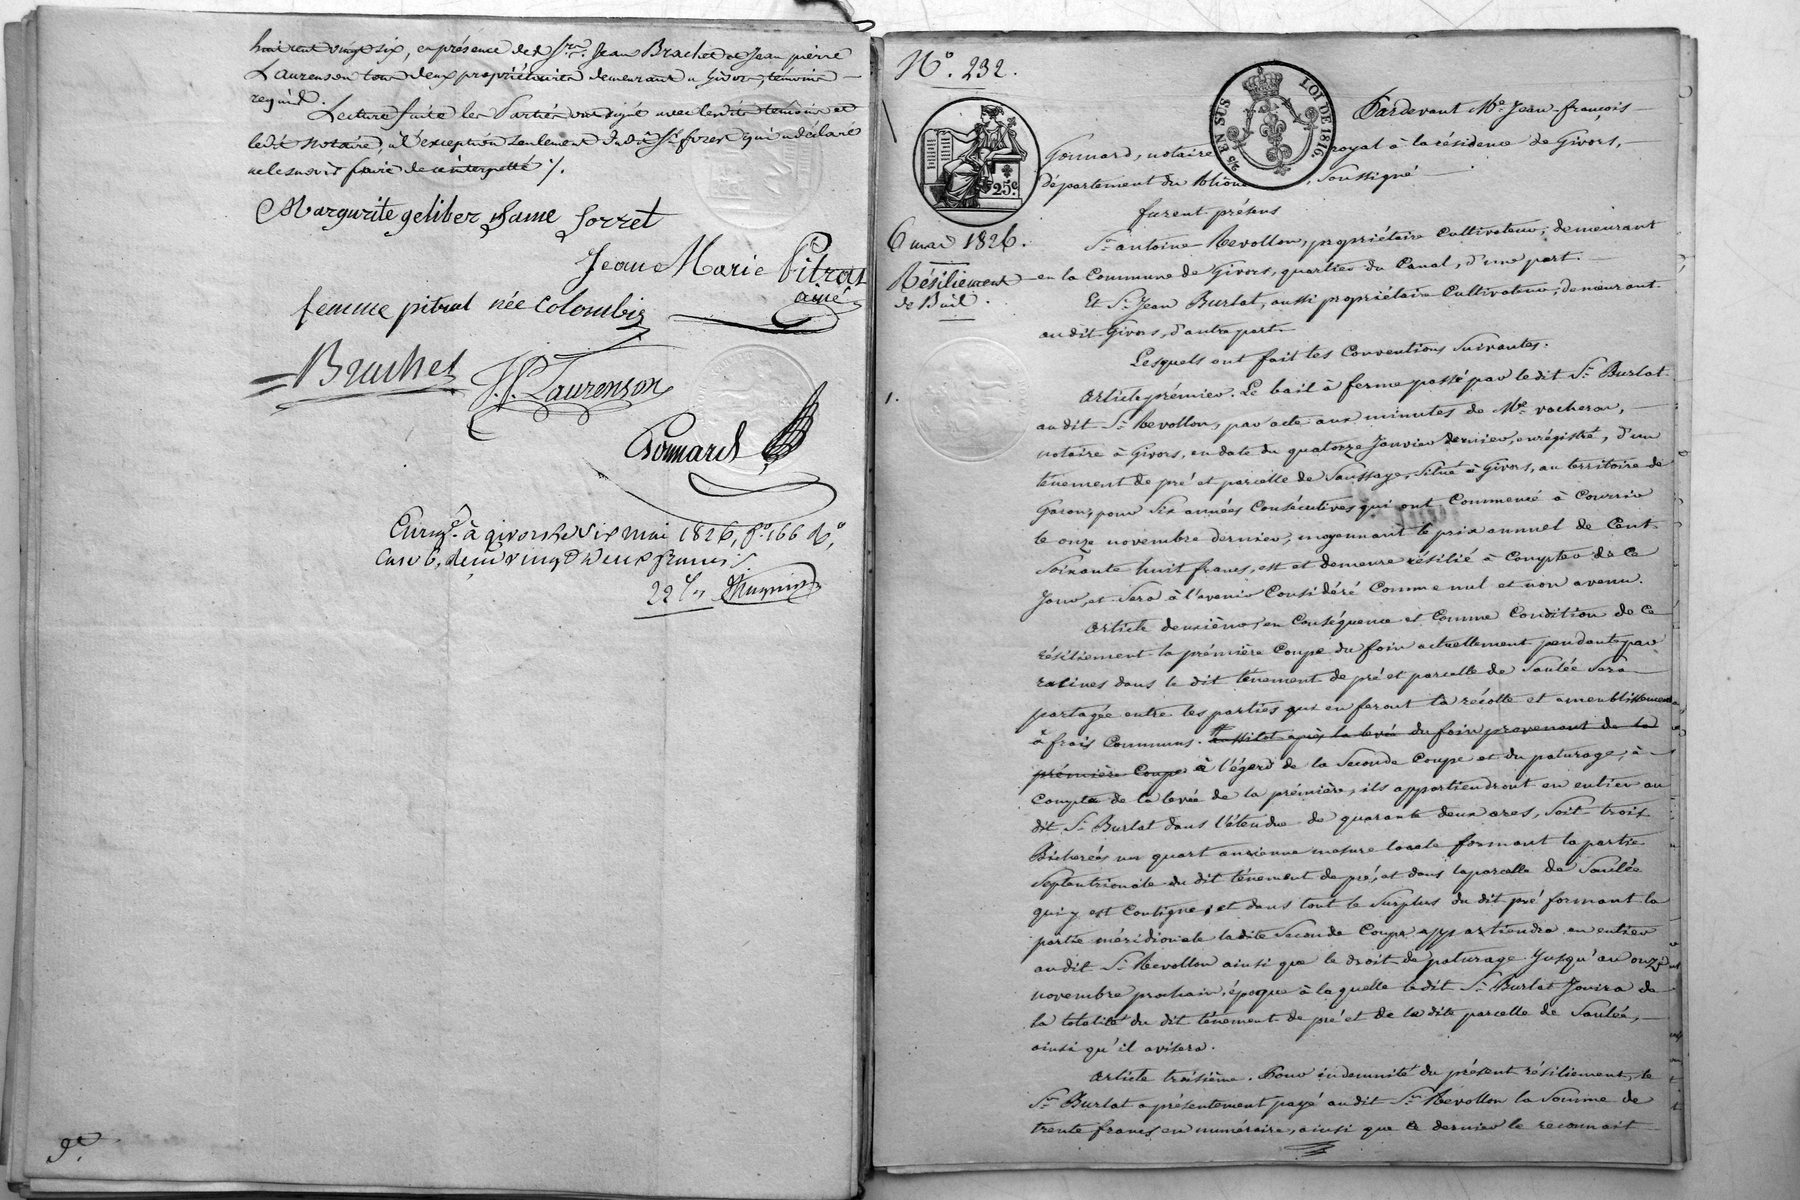 huit cent vingt six, en présence de Srs. Jean Brachet et Jean pierre
Laurenson tous deux propriétaires demeurant à Givors, témoins
requis.
Lecture faite les Parties ont signé avec lesdits témoins et
ledit notaire, à l'exception seulement dudit Sr forest qui a déclaré
ne le savoir faire de ce interpellé ./.
Margurite geliber fame forret
Jean Marie Pitrat
ainé
femme pitrat née colombier
Brachet J.P. Laurenson
Gonnard
Enregé. à givors le six mai 1826, f° 166 Ro,
case 6, reçu vingt deux francs
22 f
N° 232.
LOI DE 1816.
25 EN SUS
25c
Pardevant Me Jean-françois
Gonnard, notaire royal à la résidence de Givors,
département du Rhône, soussigné
furent présens
6 mai 1826.
Résiliement
de Bail.
Sr antoine Revollon, propriétaire Cultivateur, demeurant
en la Commune de Givors, quartier du Canal, d'une part.
Et Sr Jean Burlat, aussi propriétaire Cultivateur, demeurant
audit Givors, d'autre part.
Lesquels ont fait les Conventions Suivantes.
1.
Article prémier. Le bail à ferme passé par ledit Sr Burlat
audit Sr Revollon, par acte aux minutes de Me vacheron,
notaire à Givors, en date du quatorze Janvier dernier, enrégistré, d'un
ténement de pré et parcelle de Saussaye, Situé à Givors, au territoire de
Garon, pour Six années Consécutives qui ont Commencé à Courrir
le onze novembre dernier, moyennant le prix annuel de Cent
Soixante huit francs, est et demeure résilié à Compter de Ce
Jour, et Sera à l'avenir Considéré Comme nul et non avenu.
Article deuxième, en Conséquence et Comme Condition de Ce
résiliement la prémière Coupe du foin actuellement pendante par
racines dans le dit ténement de pré et parcelle de Saulée Sera
partagée entre les parties qui en feront la récolte et ameublissement
à frais Communs. aussitot après la levée du foin provenant de la
prémière Coupe à l'égard de la Seconde Coupe et du paturage, à
Compter de la levée de la prémière, ils appartiendront en entier au
dit Sr Burlat dans l'étendue de quarante deux ares, Soit trois
Bicherées un quart ancienne mesure locale formant la partie
Septentrionale du dit ténement de pré, et dans la parcelle de Saulée
qui y est Contigue, et dans tout le Surplus du dit pré formant la
partie méridionale ladite Seconde Coupe appartiendra en entier
audit Sr Revollon ainsi que le droit de paturage Jusqu'au onze
novembre prochain, époque à laquelle ledit Sr Burlat Jouira de
la totalité du dit ténement de pré et de la dite parcelle de Saulée,
ainsi qu'il avisera.
Article troisième. Pour indemnité du présent résiliement, le
Sr Burlat a présentement payé audit Sr Revollon la Somme de
trente francs en numéraire, ainsi que Ce dernier le reconnait